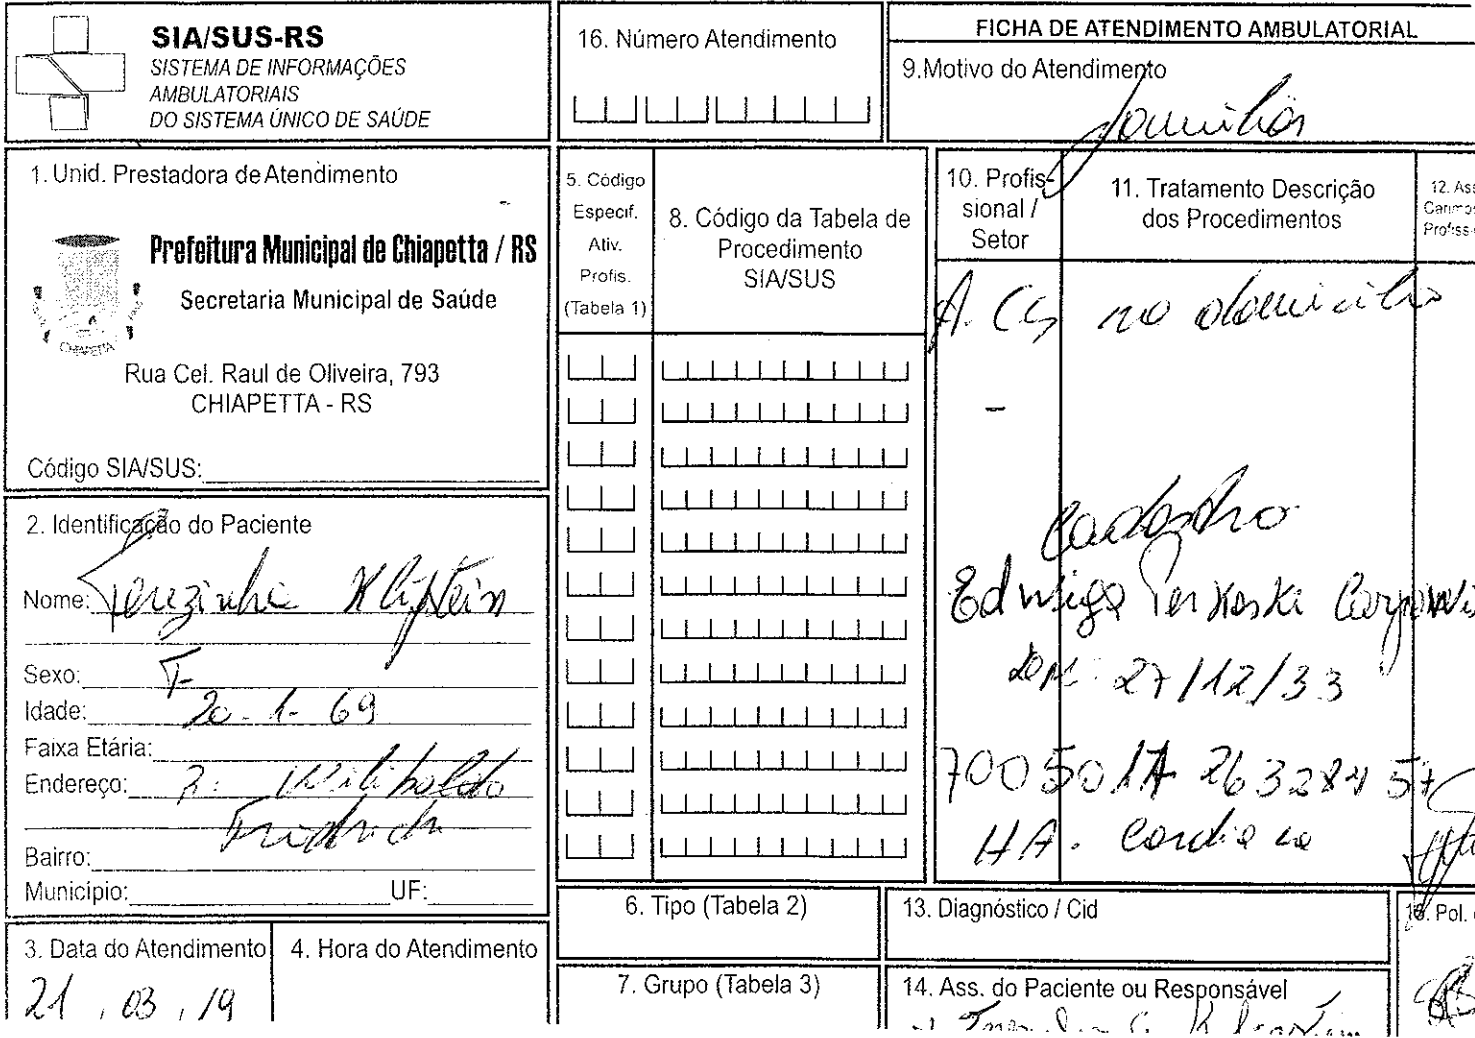 SIA/SUS-RS
SISTEMA DE INFORMAÇÕES
AMBULATORIAIS
DO SISTEMA ÚNICO DE SAÚDE
16. Número Atendimento
FICHA DE ATENDIMENTO AMBULATORIAL
9.Motivo do Atendimento
1. Unid. Prestadora de Atendimento
Prefeitura Municipal de Chiapetta / RS
Secretaria Municipal de Saúde
CHIAPETTA
Rua Cel. Raul de Oliveira, 793
CHIAPETTA - RS
Código SIA/SUS:
2. Identificação do Paciente
Nome: Terezinha
Sexo: F
Idade: 20-1-69
Faixa Etária:
Endereço: R. Wilibaldo
Fridrich
Bairro:
Município: UF:
3. Data do Atendimento
21 . 03 . 19
4. Hora do Atendimento
5. Código
Especif.
Ativ.
Profis.
(Tabela 1)
8. Código da Tabela de
Procedimento
SIA/SUS
6. Tipo (Tabela 2)
7. Grupo (Tabela 3)
10. Profis-
sional /
Setor
11. Tratamento Descrição
dos Procedimentos
12. Ass
Carimbo
Profiss
A. CS no domicilio
-
Cadastro
Edwiga
DN: 27/12/33
HA. Cardiaca
13. Diagnóstico / Cid
14. Ass. do Paciente ou Responsável
Pol.